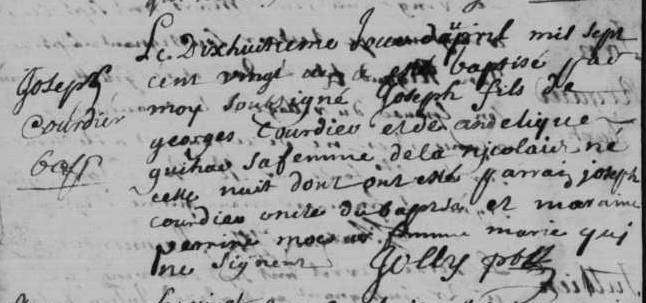 Joseph
Courdier
bap
Le Dixhuitieme Jour d'apvril mil sept
cent vingt a esté baptisé par
moy soussigné Joseph fils de
georges Courdier et de andelique
sa femme de la nicolais né
cette nuit dont ont esté parrain joseph
courdier oncle du baptisé et maraine
perrine femme marie qui
ne signent Jolly pbtre